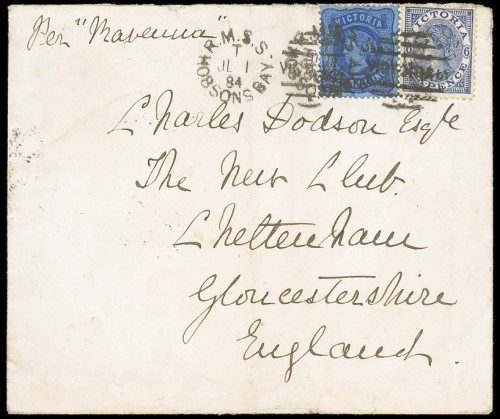 Per "Ravenna"
R.M.S.S.
T
JL 1
84
HOBSONS BAY.
VICTORIA
VICTORIA
6
PENCE
Charles Dodson Esqre
The New Club.
Cheltenham
Gloucestershire
England.